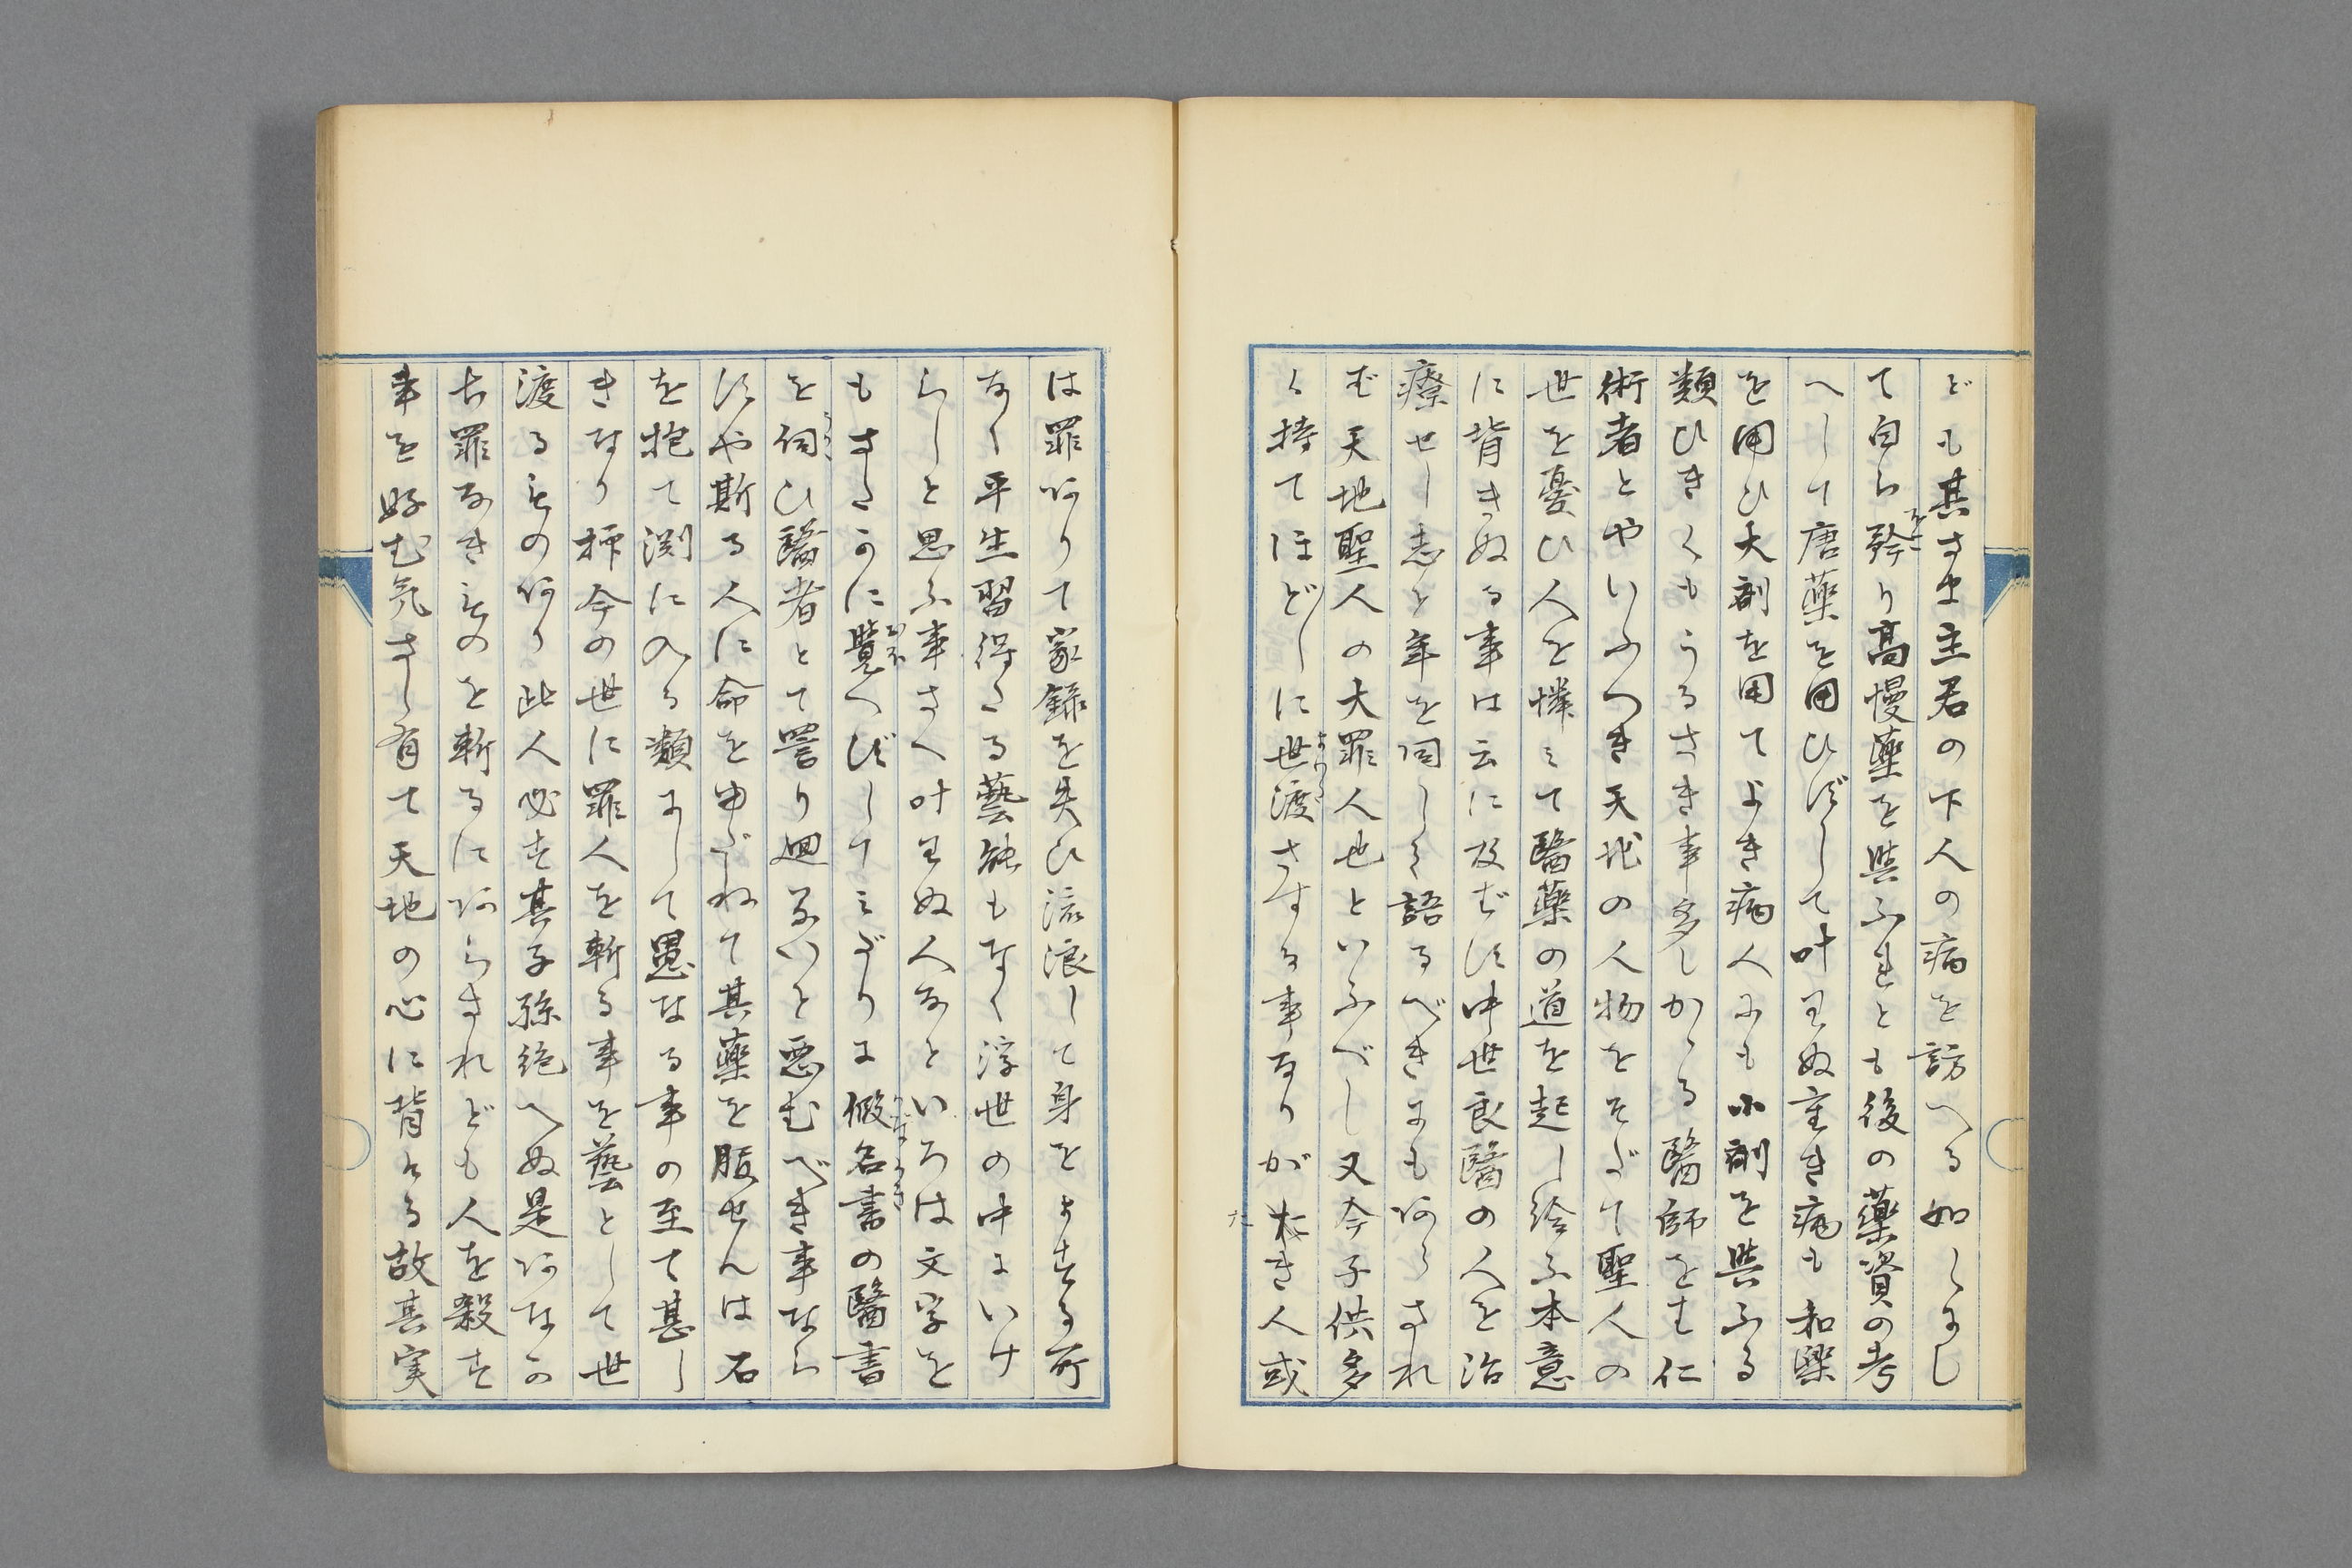 ども其さま主君の下人の病を訪へる如しよし
て自ら矜り高慢薬を與ふれとも後の薬資の考
へして唐薬を用ひずして叶はぬ重き病も和薬
を用ひ大剤を用てよき病人にも小剤を與ふる
類ひきくもうるさき事多しかゝる醫師をも仁
術者とやいふべき天地の人物をそだて聖人の
世を憂ひ人を憐みて醫薬の道を起し給ふ本意
に背きぬる事は云に及ばず中世良醫の人を治
療せし志と年を同しく語るべきにもあらされ
ば天地聖人の大罪人也といふべし又今子供多
く持てほどしに世渡さする事なりがたき人或
は罪ありて家録を失ひ流浪して身をよする所
なく平生習得たる藝能もなく浮世の中にいけ
らしと思ふ事さへ叶はぬ人なといろは文字を
もまさかに覺へずしてみだりに假名書の醫書
を伺ひ醫者とて詈り廻るいと悪むべき事なら
ずや斯る人に命をゆだねて其薬を服せんは石
を抱て渕に入る類にして愚なる事の至て甚し
きなり抑今の世に罪人を斬る事を藝として世
渡るもの有り此人必す其子孫絶へぬ是あなか
ち罪なきものを斬るにあらされども人を殺す
事を好む気さし有て天地の心に背ける故其実